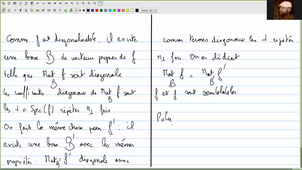 Comme f est diagonalisable, il existe
une base B de vecteurs propres de f
telle que Mat f soit diagonale
B
les coefficients diagonaux de Mat f sont
B
les λ ∈ Spec(f) répétés n_λ fois
On fait la même chose pour f' : il
existe une base B' avec les mêmes
propriétés Mat f' diagonale avec
B'
comme termes diagonaux les λ répétés
n_λ fois. On en déduit
Mat f = Mat f'
B B'
f et f' sont semblables.
Pola